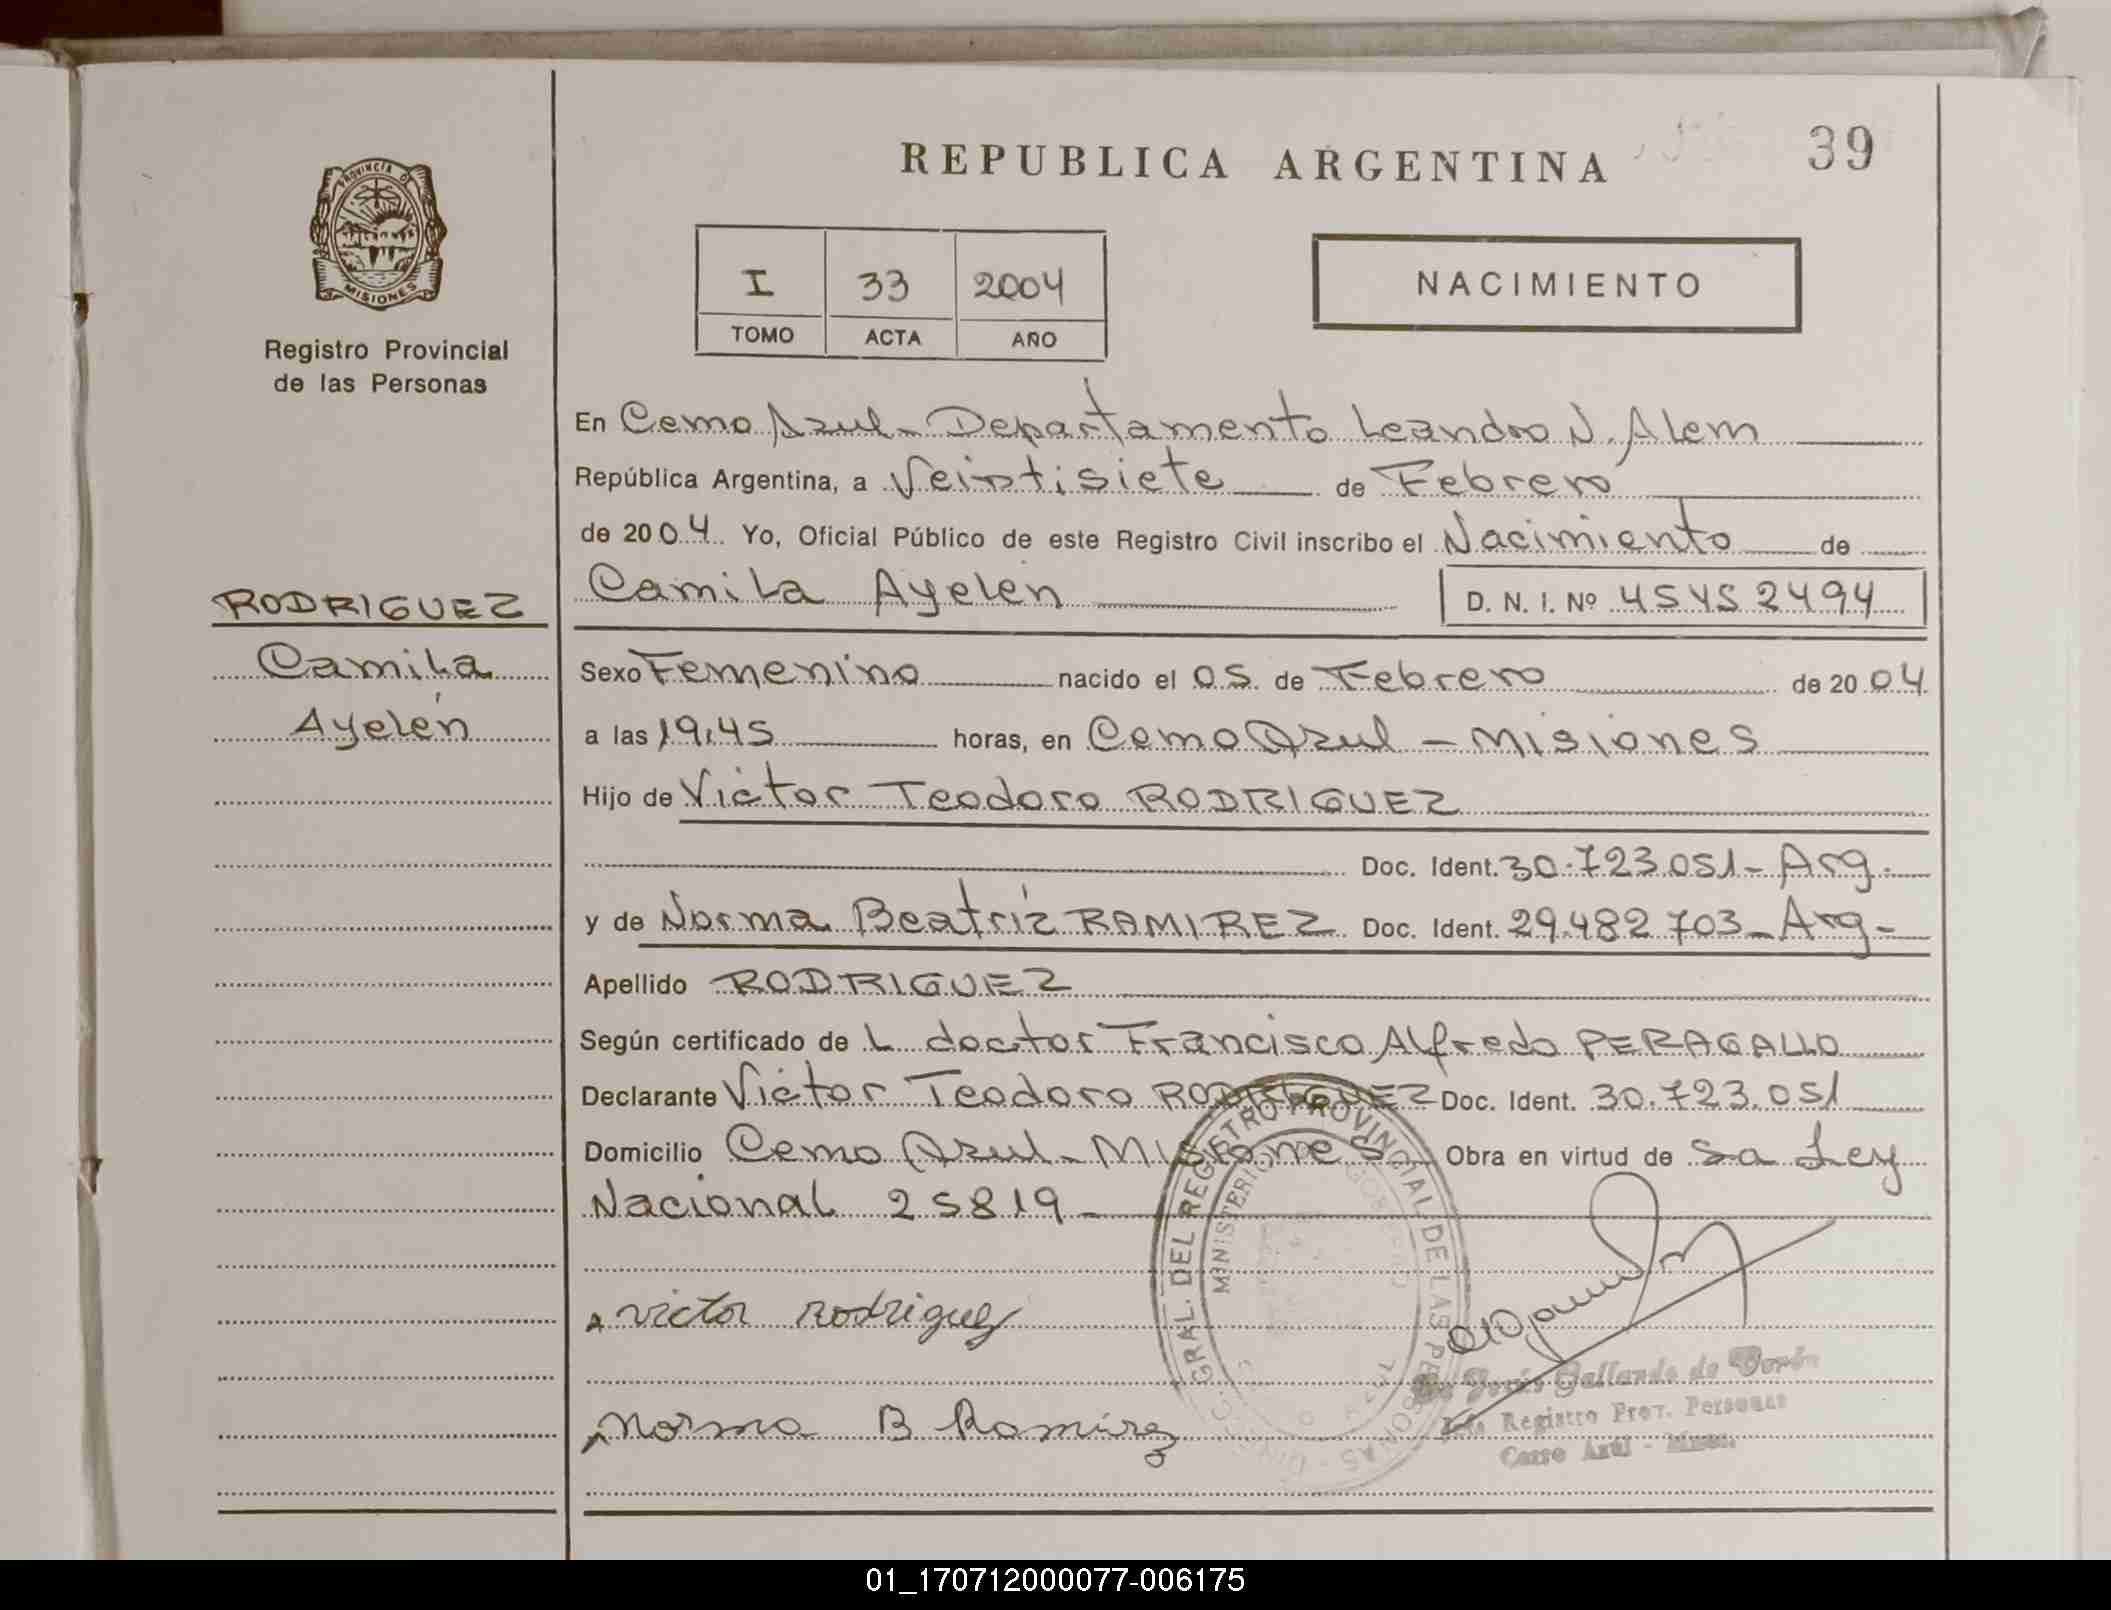 REPUBLICA ARGENTINA
39
PROVINCIA D
MISIONES
Registro Provincial
de las Personas
I 33 2004
TOMO ACTA AÑO
NACIMIENTO
En Cerro Azul - Departamento Leandro N. Alem
República Argentina, a Veintisiete de Febrero
de 2004 Yo, Oficial Público de este Registro Civil inscribo el Nacimiento de
Camila Ayelen D. N. I. Nº 45452494
RODRIGUEZ
Camila
Ayelén
Sexo Femenino nacido el 05 de Febrero de 2004
a las 19,45 horas, en Cerro Azul - Misiones
Hijo de Victor Teodoro RODRIGUEZ
Doc. Ident. 30.723.051 - Arg.
y de Norma Beatriz RAMIREZ Doc. Ident. 29.482.703 - Arg -
Apellido RODRIGUEZ
Según certificado de L doctor Francisco Alfredo PERAGALLO
Declarante Victor Teodoro RODRIGUEZ Doc. Ident. 30.723.051
Domicilio Cerro Azul - Misiones Obra en virtud de La Ley
Nacional 25819 -
victor Rodriguez
Norma B Ramirez
GRAL. DEL REGISTRO PROVINCIAL DE LAS PERSONAS
MINISTERIO
Gallardo de
Registro Prov. Personas
Cerro Azul - Mnes.
01_170712000077-006175